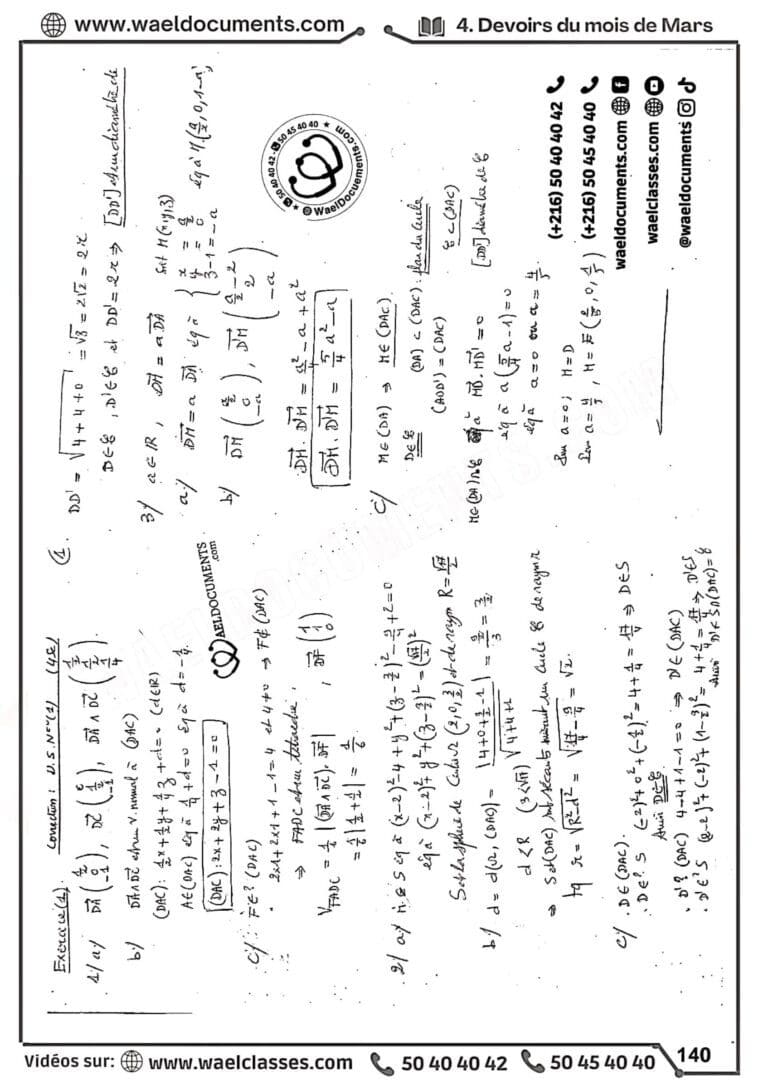 www.waeldocuments.com
4. Devoirs du mois de Mars
Exercice(1) Correction: D.S.N°(1) (4è)
1/ a/ DA→ (1/2, 0, -1), DC→ (0, 1/2, -1), DA→ ∧ DC→ (1/2, 1/2, 1/4).
b/ DA→ ∧ DC→ est un v. normal à (DAC)
(DAC): 1/2 x + 1/2 y + 1/4 z + d = 0 (d∈IR)
A∈(DAC) éq à 1/4 + d = 0 éq à d = -1/4.
(DAC): 2x + 2y + z - 1 = 0
WAELDOCUMENTS
.com
c/ F∈? (DAC)
2x1 + 2x1 + 1 - 1 = 4 et 4≠0 ⇒ F∉(DAC)
⇒ FADC est un tétraèdre.
V FADC = 1/6 |(DA→ ∧ DC→). DF→| , DF→ (1, 1, 0)
= 1/6 |1/2 + 1/2| = 1/6
2/ a/ S éq à (x-2)² - 4 + y² + (z - 3/2)² - 9/4 + 2 = 0
éq à (x-2)² + y² + (z - 3/2)² = (√17/2)²
S est la sphère de centre Ω(2, 0, 3/2) et de rayon R = √17/2
b/ d = d(Ω, (DAC)) = |4 + 0 + 3/2 - 1| / √4+4+1 = 9/2 / 3 = 3/2
d < R (3 < √17)
⇒ S et (DAC) sont sécants suivant un cercle 𝒞 de rayon r
tq r = √R² - d² = √17/4 - 9/4 = √2.
c/ . D∈(DAC).
. D∈? S (-2)² + 0² + (-1/2)² = 4 + 1/4 = 17/4 ⇒ D∈S
Ainsi D∈𝒞
. D'? (DAC) 4 - 4 + 1 - 1 = 0 ⇒ D'∈(DAC)
. D'∈? S (2-2)² + (-2)² + (1 - 3/2)² = 4 + 1/4 = 17/4 ⇒ D'∈S
Ainsi D'∈ S∩(DAC) = 𝒞
1.
DD' = √4+4+0 = √8 = 2√2 = 2r
D∈𝒞, D'∈𝒞 et DD' = 2r ⇒ [DD'] est un diamètre de
3/ a∈IR, DM→ = a DA→ Soit M(x,y,z)
a/ DM→ = a DA→ éq à { x = a/2, y = 0, z - 1 = -a éq à M(a/2, 0, 1-a)
b/ DM→ (a/2, 0, -a), D'M→ (a/2 - 2, 2, -a)
DM→ . D'M→ = a²/4 - a + a²
DM→ . D'M→ = 5/4 a² - a
c/ M∈(DA) ⇒ M∈(DAC).
D∈𝒞 (DA) ⊂ (DAC): plan du cercle
(ADD') = (DAC) 𝒞 ⊂ (DAC)
M∈(DA)∩𝒞 éq à MD→ . MD'→ = 0 [DD'] diamètre de 𝒞
éq à a(5/4 a - 1) = 0
éq à a = 0 ou a = 4/5
Si a = 0; M = D
Si a = 4/5, M = E(2/5, 0, 1/5)
50 45 40 40
50 40 40 42
@WaelDocuements.com
(+216) 50 40 40 42
(+216) 50 45 40 40
waeldocuments.com
waelclasses.com
@waeldocuments
Vidéos sur: www.waelclasses.com 50 40 40 42 50 45 40 40 140